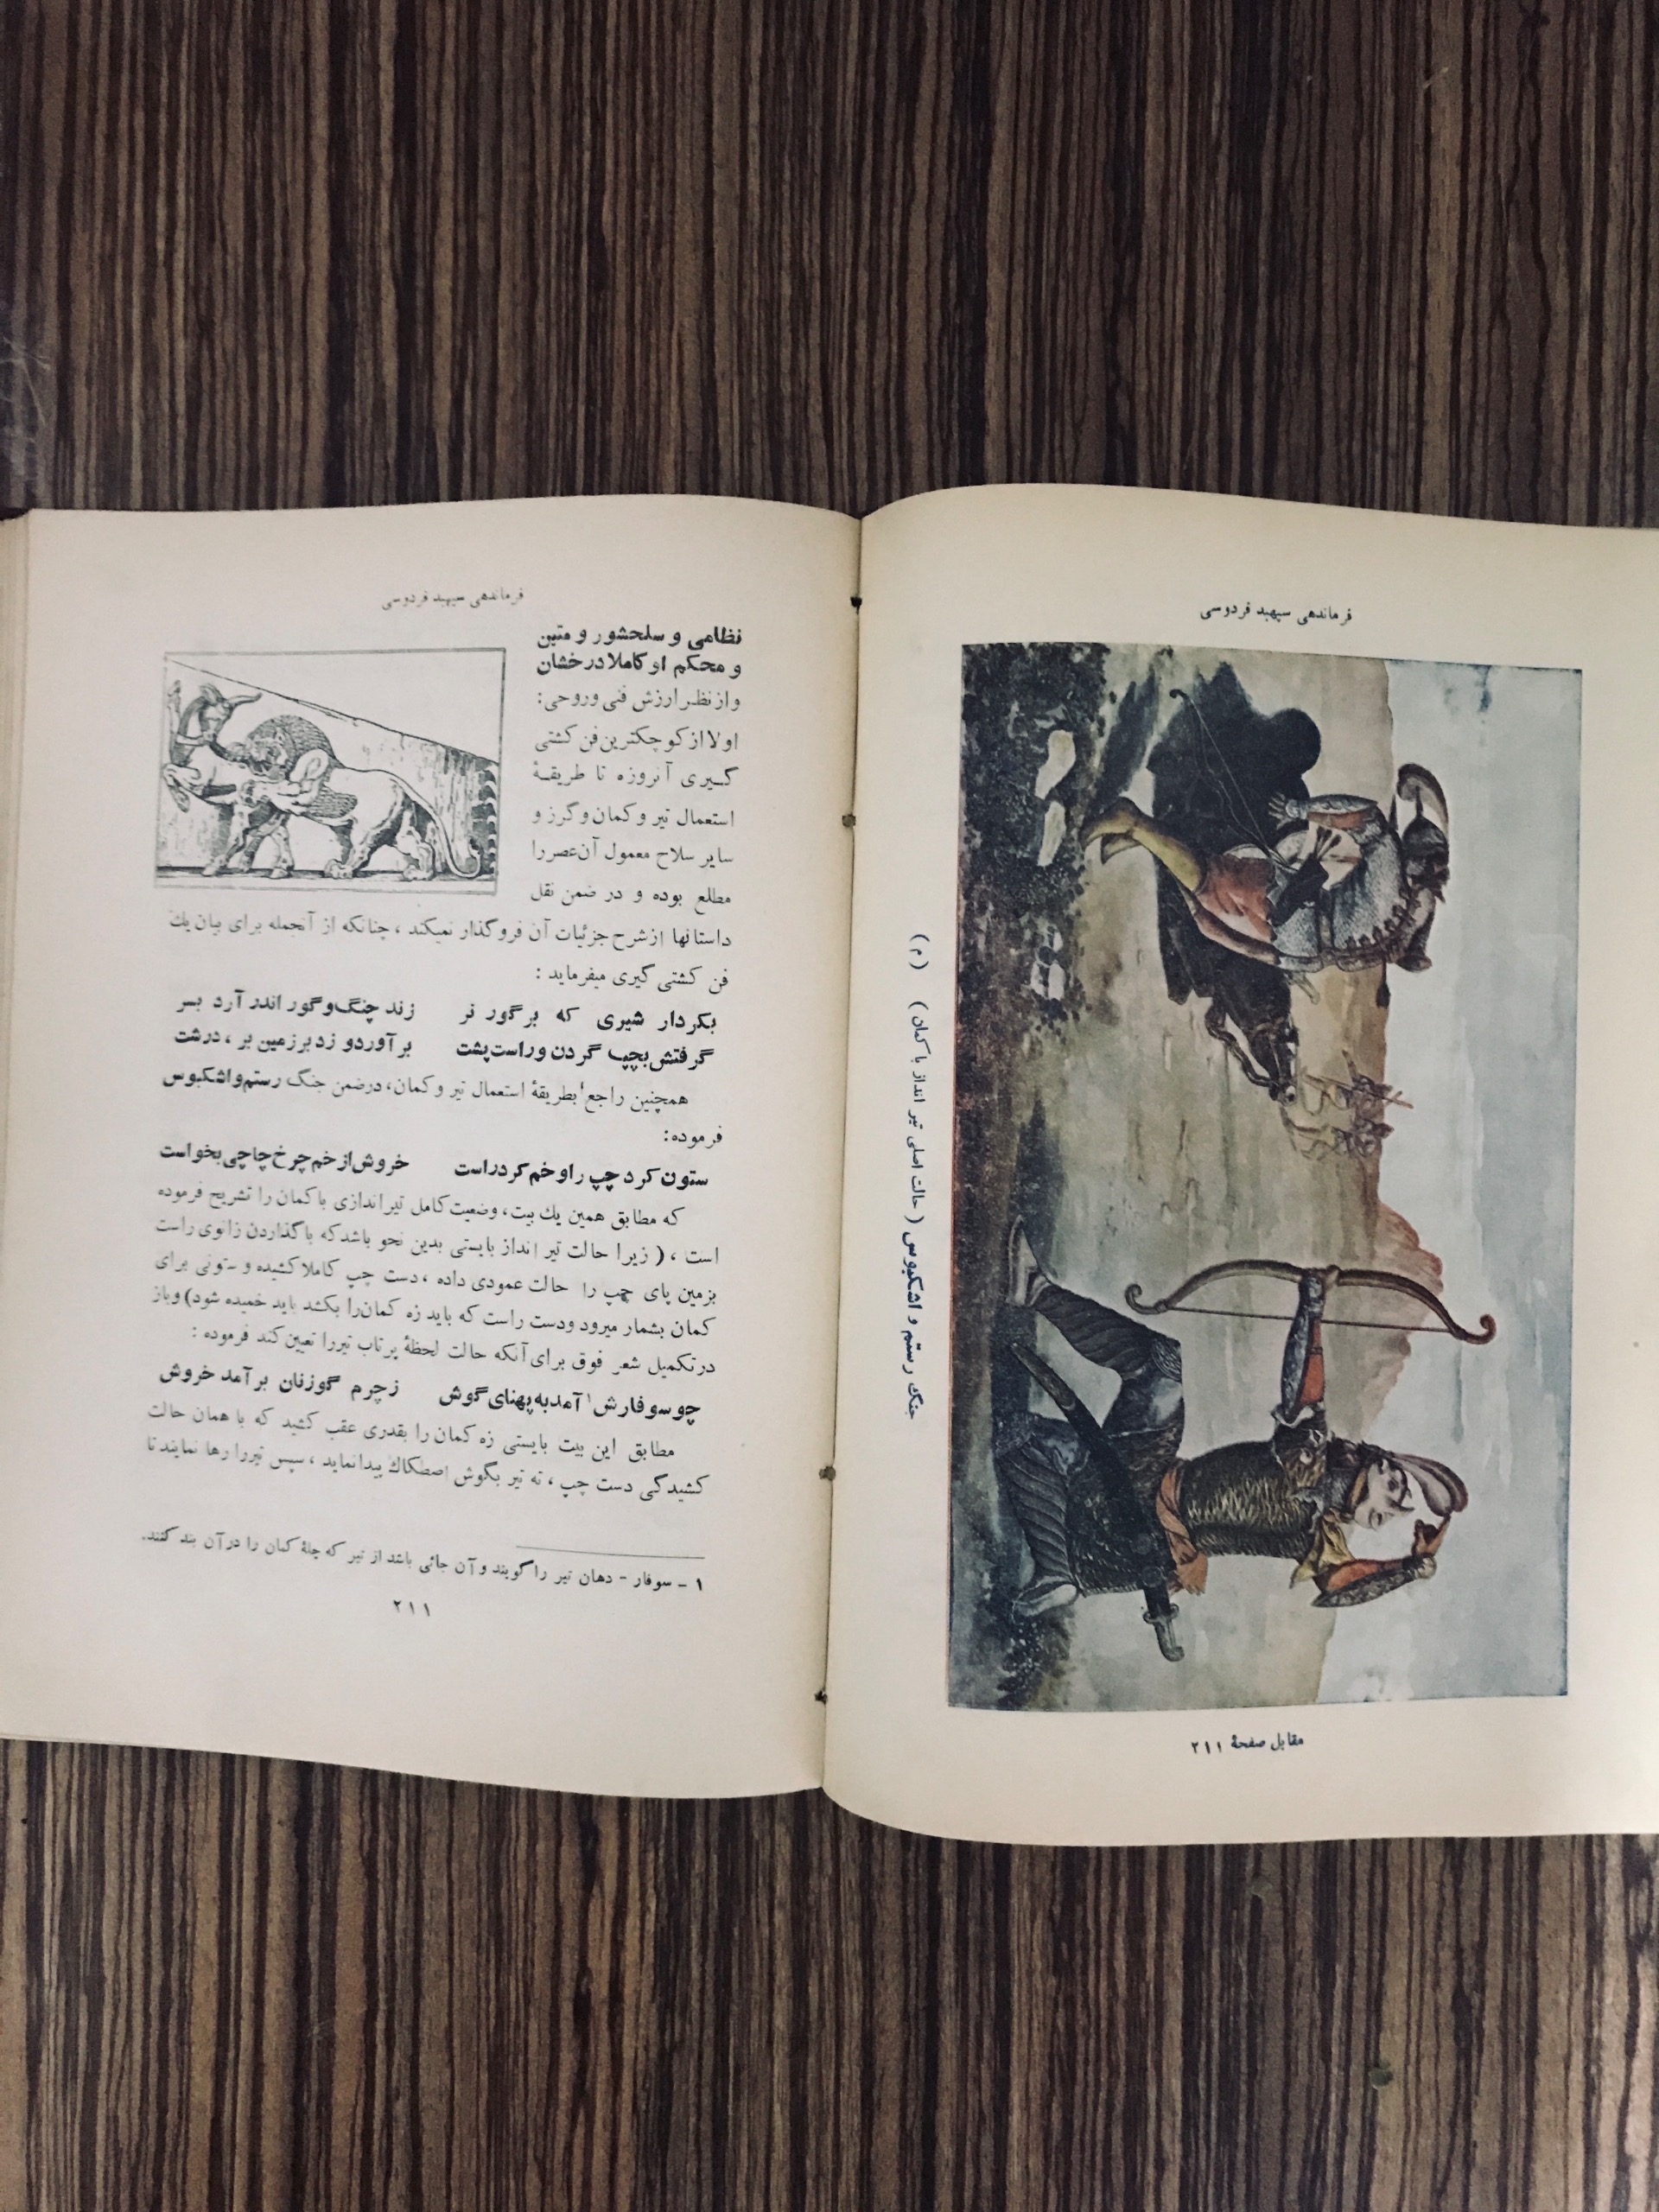 فرماندهی سپهبد فردوسی
جنگ رستم و اشکبوس (حالت اصلی تیر انداز با کمان) (م)
مقابل صفحهٔ ۲۱۱
فرماندهی سپهبد فردوسی
نظامی و سلحشور و متین
و محکم او کاملا درخشان
و از نظر ارزش فنی و روحی:
اولا از کوچکترین فن کشتی
گیری آنروزه تا طریقهٔ
استعمال تیر و کمان و گرز و
سایر سلاح معمول آن عصر را
مطلع بوده و در ضمن نقل
داستانها از شرح جزئیات آن فروگذار نمیکند، چنانکه از آنجمله برای بیان یك
فن کشتی گیری میفرماید:
بکردار شیری که بر گور نر زند چنگ و گور اندر آرد بسر
گرفتش بچپ گردن و راست پشت بر آورد و زد بر زمین بر، درشت
همچنین راجع بطریقهٔ استعمال تیر و کمان، در ضمن جنگ رستم و اشکبوس
فرموده:
ستون کرد چپ را و خم کرد راست خروش از خم چرخ چاچی بخواست
که مطابق همین یك بیت، وضعیت کامل تیراندازی با کمان را تشریح فرموده
است، (زیرا حالت تیر انداز بایستی بدین نحو باشد که با گذاردن زانوی راست
بزمین پای چپ را حالت عمودی داده، دست چپ کاملا کشیده و ستونی برای
کمان بشمار میرود و دست راست که باید زه کمان را بکشد باید خمیده شود) و باز
در تکمیل شعر فوق برای آنکه حالت لحظهٔ پرتاب تیر را تعیین کند فرموده:
چو سوفارش¹ آمد به پهنای گوش ز چرم گوزنان بر آمد خروش
مطابق این بیت بایستی زه کمان را بقدری عقب کشید که با همان حالت
کشیدگی دست چپ، ته تیر بگوش اصطکاك پیدا نماید، سپس تیر را رها نمایند تا
۱ - سوفار - دهان تیر را گویند و آن جائی باشد از تیر که چلهٔ کمان را در آن بند کنند.
۲۱۱